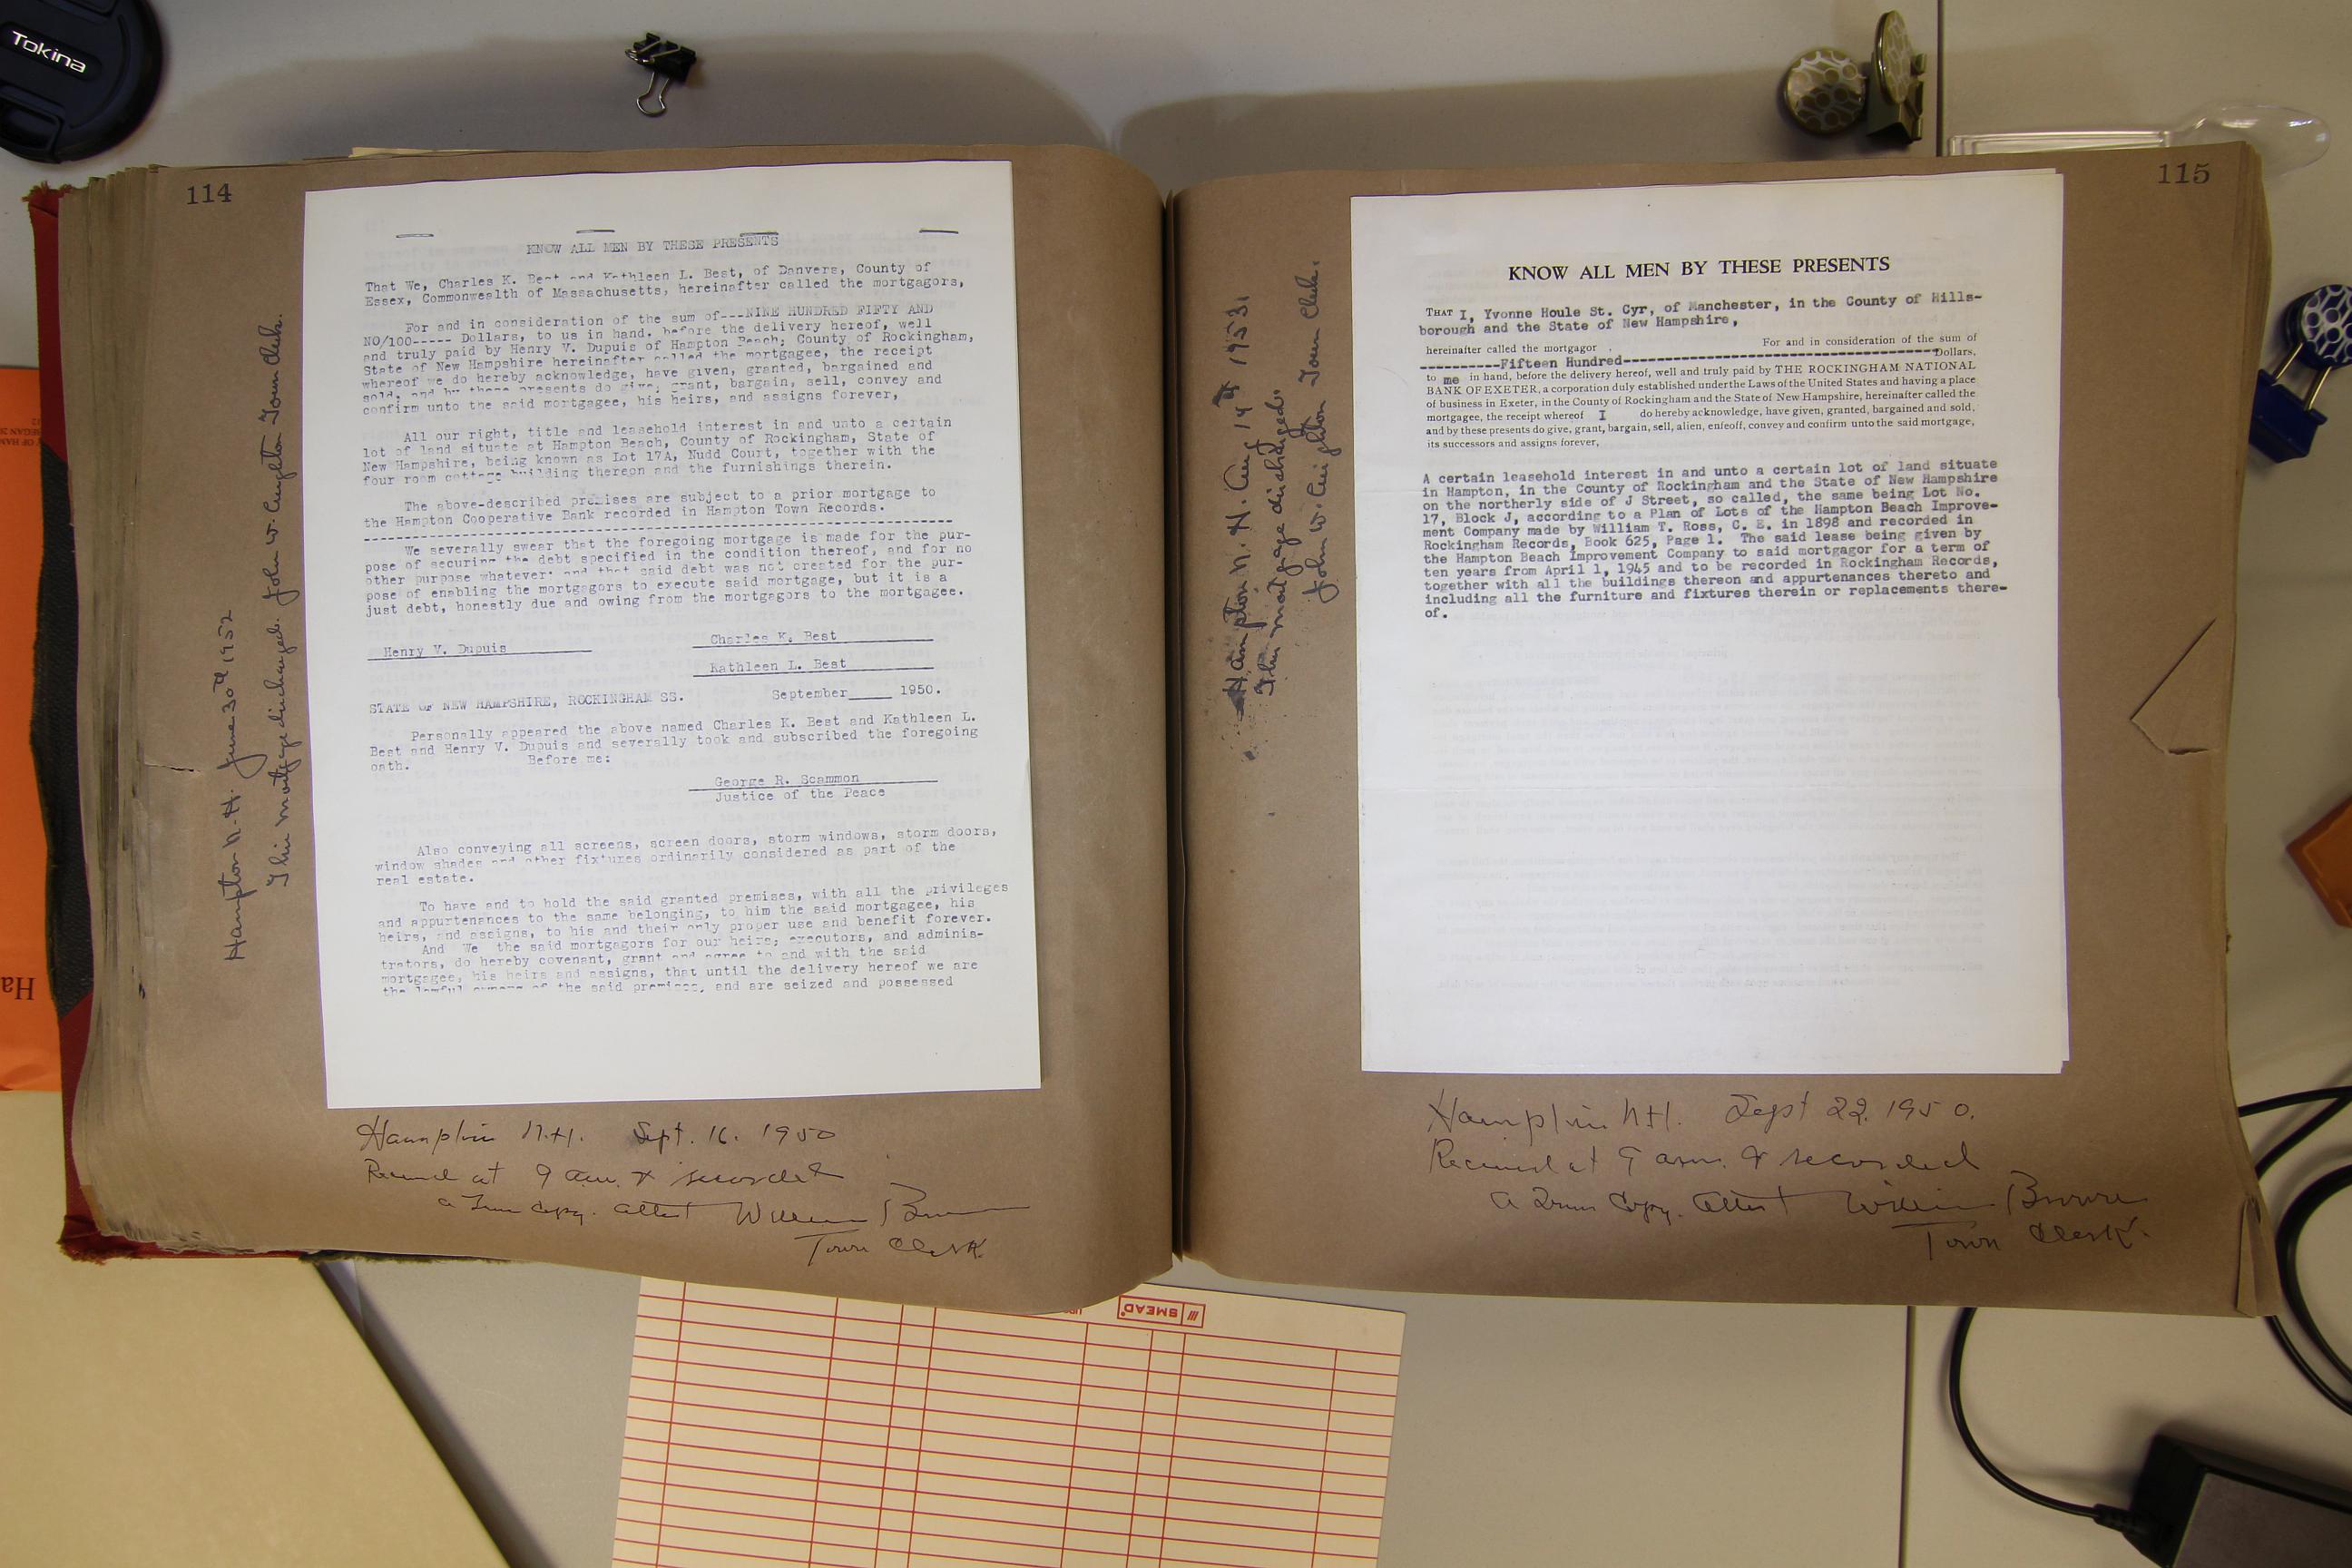 Tokina
114
KNOW ALL MEN BY THESE PRESENTS
That We, Charles K. Best and Kathleen L. Best, of Danvers, County of
Essex, Commonwealth of Massachusetts, hereinafter called the mortgagors,
For and in consideration of the sum of---NINE HUNDRED FIFTY AND
NO/100----- Dollars, to us in hand, before the delivery hereof, well
and truly paid by Henry V. Dupuis of Hampton Beach; County of Rockingham,
State of New Hampshire hereinafter called the mortgagee, the receipt
whereof we do hereby acknowledge, have given, granted, bargained and
sold, and by these presents do give, grant, bargain, sell, convey and
confirm unto the said mortgagee, his heirs, and assigns forever,
All our right, title and leasehold interest in and unto a certain
lot of land situate at Hampton Beach, County of Rockingham, State of
New Hampshire, being known as Lot 17A, Nudd Court, together with the
four room cottage building thereon and the furnishings therein.
The above-described premises are subject to a prior mortgage to
the Hampton Cooperative Bank recorded in Hampton Town Records.
We severally swear that the foregoing mortgage is made for the pur-
pose of securing the debt specified in the condition thereof, and for no
other purpose whatever; and that said debt was not created for the pur-
pose of enabling the mortgagors to execute said mortgage, but it is a
just debt, honestly due and owing from the mortgagors to the mortgagee.
Henry V. Dupuis
Charles K. Best
Kathleen L. Best
STATE OF NEW HAMPSHIRE, ROCKINGHAM SS. September_____ 1950.
Personally appeared the above named Charles K. Best and Kathleen L.
Best and Henry V. Dupuis and severally took and subscribed the foregoing
oath. Before me:
George R. Scammon
Justice of the Peace
Also conveying all screens, screen doors, storm windows, storm doors,
window shades and other fixtures ordinarily considered as part of the
real estate.
To have and to hold the said granted premises, with all the privileges
and appurtenances to the same belonging, to him the said mortgagee, his
heirs, and assigns, to his and their only proper use and benefit forever.
And We the said mortgagors for our heirs; executors, and adminis-
trators, do hereby covenant, grant and agree to and with the said
mortgagee, his heirs and assigns, that until the delivery hereof we are
the lawful owners of the said premises, and are seized and possessed
Hampton N.H. Sept. 16. 1950
Received at 9 am. & recorded
a True Copy. Attest William Brown
Town Clerk.
Hampton N.H. June 30th 1952
This mortgage discharged. John W. Creighton Town Clerk.
115
KNOW ALL MEN BY THESE PRESENTS
THAT I, Yvonne Houle St. Cyr, of Manchester, in the County of Hills-
borough and the State of New Hampshire,
hereinafter called the mortgagor . For and in consideration of the sum of
----------Fifteen Hundred----------------------------------------Dollars,
to me in hand, before the delivery hereof, well and truly paid by THE ROCKINGHAM NATIONAL
BANK OF EXETER, a corporation duly established under the Laws of the United States and having a place
of business in Exeter, in the County of Rockingham and the State of New Hampshire, hereinafter called the
mortgagee, the receipt whereof I do hereby acknowledge, have given, granted, bargained and sold,
and by these presents do give, grant, bargain, sell, alien, enfeoff, convey and confirm unto the said mortgage,
its successors and assigns forever,
A certain leasehold interest in and unto a certain lot of land situate
in Hampton, in the County of Rockingham and the State of New Hampshire
on the northerly side of J Street, so called, the same being Lot No.
17, Block J, according to a Plan of Lots of the Hampton Beach Improve-
ment Company made by William T. Ross, C. E. in 1898 and recorded in
Rockingham Records, Book 625, Page 1. The said lease being given by
the Hampton Beach Improvement Company to said mortgagor for a term of
ten years from April 1, 1945 and to be recorded in Rockingham Records,
together with all the buildings thereon and appurtenances thereto and
including all the furniture and fixtures therein or replacements there-
of.
Hampton N.H. Sept 22. 1950.
Received at 9 am. & recorded
a True Copy. Attest William Brown
Town Clerk.
Hampton N.H. Aug 14th 1953.
This mortgage discharged.
John W. Creighton Town Clerk.
SMEAD
Ha